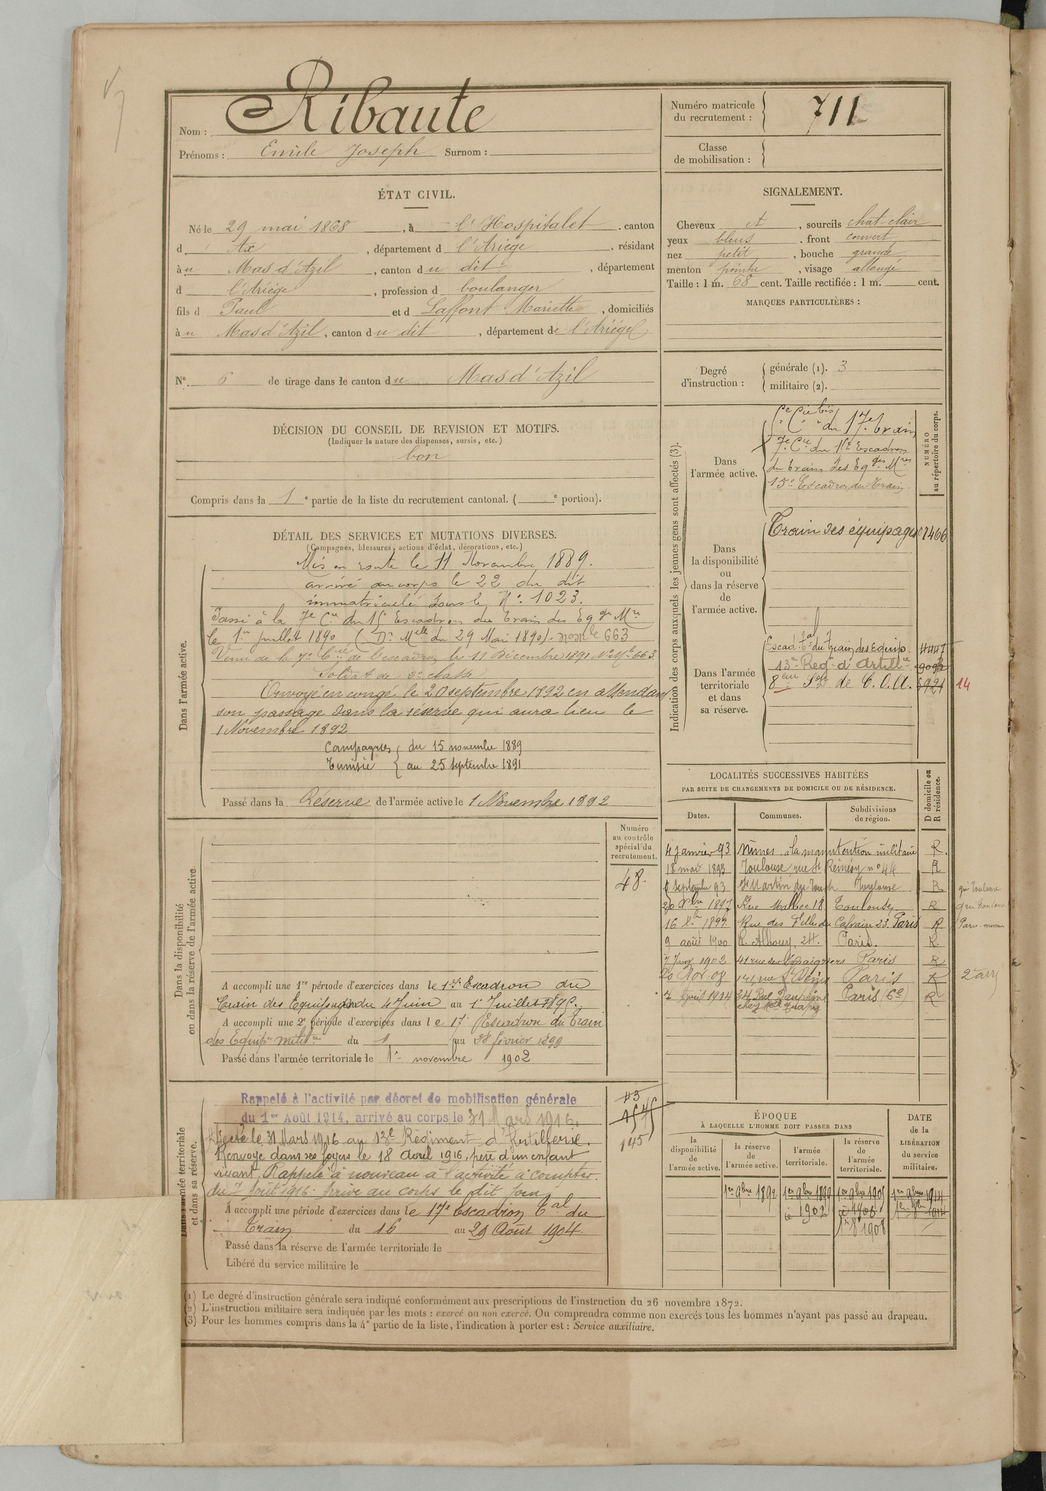 Nom : Ribaute
Prénoms : Emile Joseph Surnom :
Numéro matricule du recrutement : 711
Classe de mobilisation :
ÉTAT CIVIL.
Né le 29 mai 1868, à l'Hospitalet, canton
d' Ax, département d l'Ariège, résidant
à u Mas d'Azil, canton du dit, département
d l'Ariège, profession d boulanger
fils d Paul et d Laffont Mariette, domiciliés
à u Mas d'Azil, canton du dit, département de l'Ariège
N° 6 de tirage dans le canton du Mas d'Azil
DÉCISION DU CONSEIL DE REVISION ET MOTIFS.
(Indiquer la nature des dispenses, sursis, etc.)
bon
Compris dans la 1e partie de la liste du recrutement cantonal. ( e portion).
SIGNALEMENT.
Cheveux et, sourcils chat clair
yeux bleus, front couvert
nez petit, bouche grande
menton pointu, visage allongé
Taille : 1 m. 68 cent. Taille rectifiée : 1 m. cent.
MARQUES PARTICULIÈRES :
Degré d'instruction : générale (1). 3
militaire (2).
Indication des corps auxquels les jeunes gens sont affectés (3).
NUMÉRO au répertoire du corps.
Dans l'armée active.
du 17e train
7e Cie du 15e Escadron
du train des Eqges Mres
15e Escadron du Train
Dans la disponibilité ou dans la réserve de l'armée active.
Train des équipages 07466
Dans l'armée territoriale et dans sa réserve.
Escad. Tal du Train des Equip.
13e Reg. d'Artillie
8ème de C.O.A. 14
DÉTAIL DES SERVICES ET MUTATIONS DIVERSES.
(Campagnes, blessures, actions d'éclat, décorations, etc.)
Dans l'armée active.
Mis en route le 11 Novembre 1889.
arrivé au corps le 22 du dit
immatriculé sous le N°. 1023.
Passé à la 7e Cie du 15 Escadron du Train des Eqges Mres
le 1er juillet 1890 (D. Mlle du 29 Mai 1890). nom le 663
Venu de la 7e Cie de l'escadron le 11 Décembre 1891 N° Mle 663
Soldat de 2e classe
Envoyé en congé le 20 septembre 1892 en attendant
son passage dans la réserve qui aura lieu le
1 Novembre 1892
Campagnes du 15 novembre 1889
Tunisie au 25 septembre 1891
Passé dans la Réserve de l'armée active le 1 Novembre 1892
Dans la disponibilité ou dans la réserve de l'armée active.
Numéro au contrôle spécial du recrutement.
48.
A accompli une 1re période d'exercices dans le 17e Escadron du
Train des Equipages du 4 Juin au 1er Juillet 1895.
A accompli une 2e période d'exercices dans l e 17 Escadron du Train
des Equip. milit. du 1 au 28 février 1899
Passé dans l'armée territoriale le 1er novembre 1902
LOCALITÉS SUCCESSIVES HABITÉES
PAR SUITE DE CHANGEMENTS DE DOMICILE OU DE RÉSIDENCE.
Dates. Communes. Subdivisions de région. D domicile ou R résidence.
4 janvier 93 Nîmes à la manutention militaire R
18 mai 1893 Toulouse rue St Rémésy n° 44 R
8 septembre 93 St Martin du Touch Toulouse R
Rue Matabiau 18 Toulouse R
16 1897 Rue des Filles du Calvaire 23. Paris R
9 août 1900 R. Alibouy, 24. Paris. R
7 Janv 1902 Paris R
26 Nov 08 141 rue St Denis Paris R
7 Avril 1914 Paris 6e R
2e arr
Dans l'armée territoriale et dans sa réserve.
Rappelé à l'activité par décret de mobilisation générale
du 1er Août 1914, arrivé au corps le 31 Mars 1916.
Affecté le 31 Mars 1916 au 13e Régiment d'Artillerie.
Renvoyé dans ses foyers le 18 Avril 1916, père d'un enfant
vivant. Rappelé à nouveau à l'activité à compter
du 7 Août 1916. Arrivé au corps le dit jour
A accompli une période d'exercices dans l e 17e Escadron Tal du
Train du 16 au 29 Août 1904.
Passé dans la réserve de l'armée territoriale le
Libéré du service militaire le
ÉPOQUE
À LAQUELLE L'HOMME DOIT PASSER DANS
la disponibilité de l'armée active. la réserve de l'armée active. l'armée territoriale. la réserve de l'armée territoriale.
DATE de la LIBÉRATION du service militaire.
1er 9bre 1892 1er 9bre 1899 1er 9bre 1905 1er 9bre 1914
1902 1908
(1) Le degré d'instruction générale sera indiqué conformément aux prescriptions de l'instruction du 26 novembre 1872.
(2) L'instruction militaire sera indiquée par les mots : exercé ou non exercé. On comprendra comme non exercés tous les hommes n'ayant pas passé au drapeau.
(3) Pour les hommes compris dans la 4e partie de la liste, l'indication à porter est : Service auxiliaire.